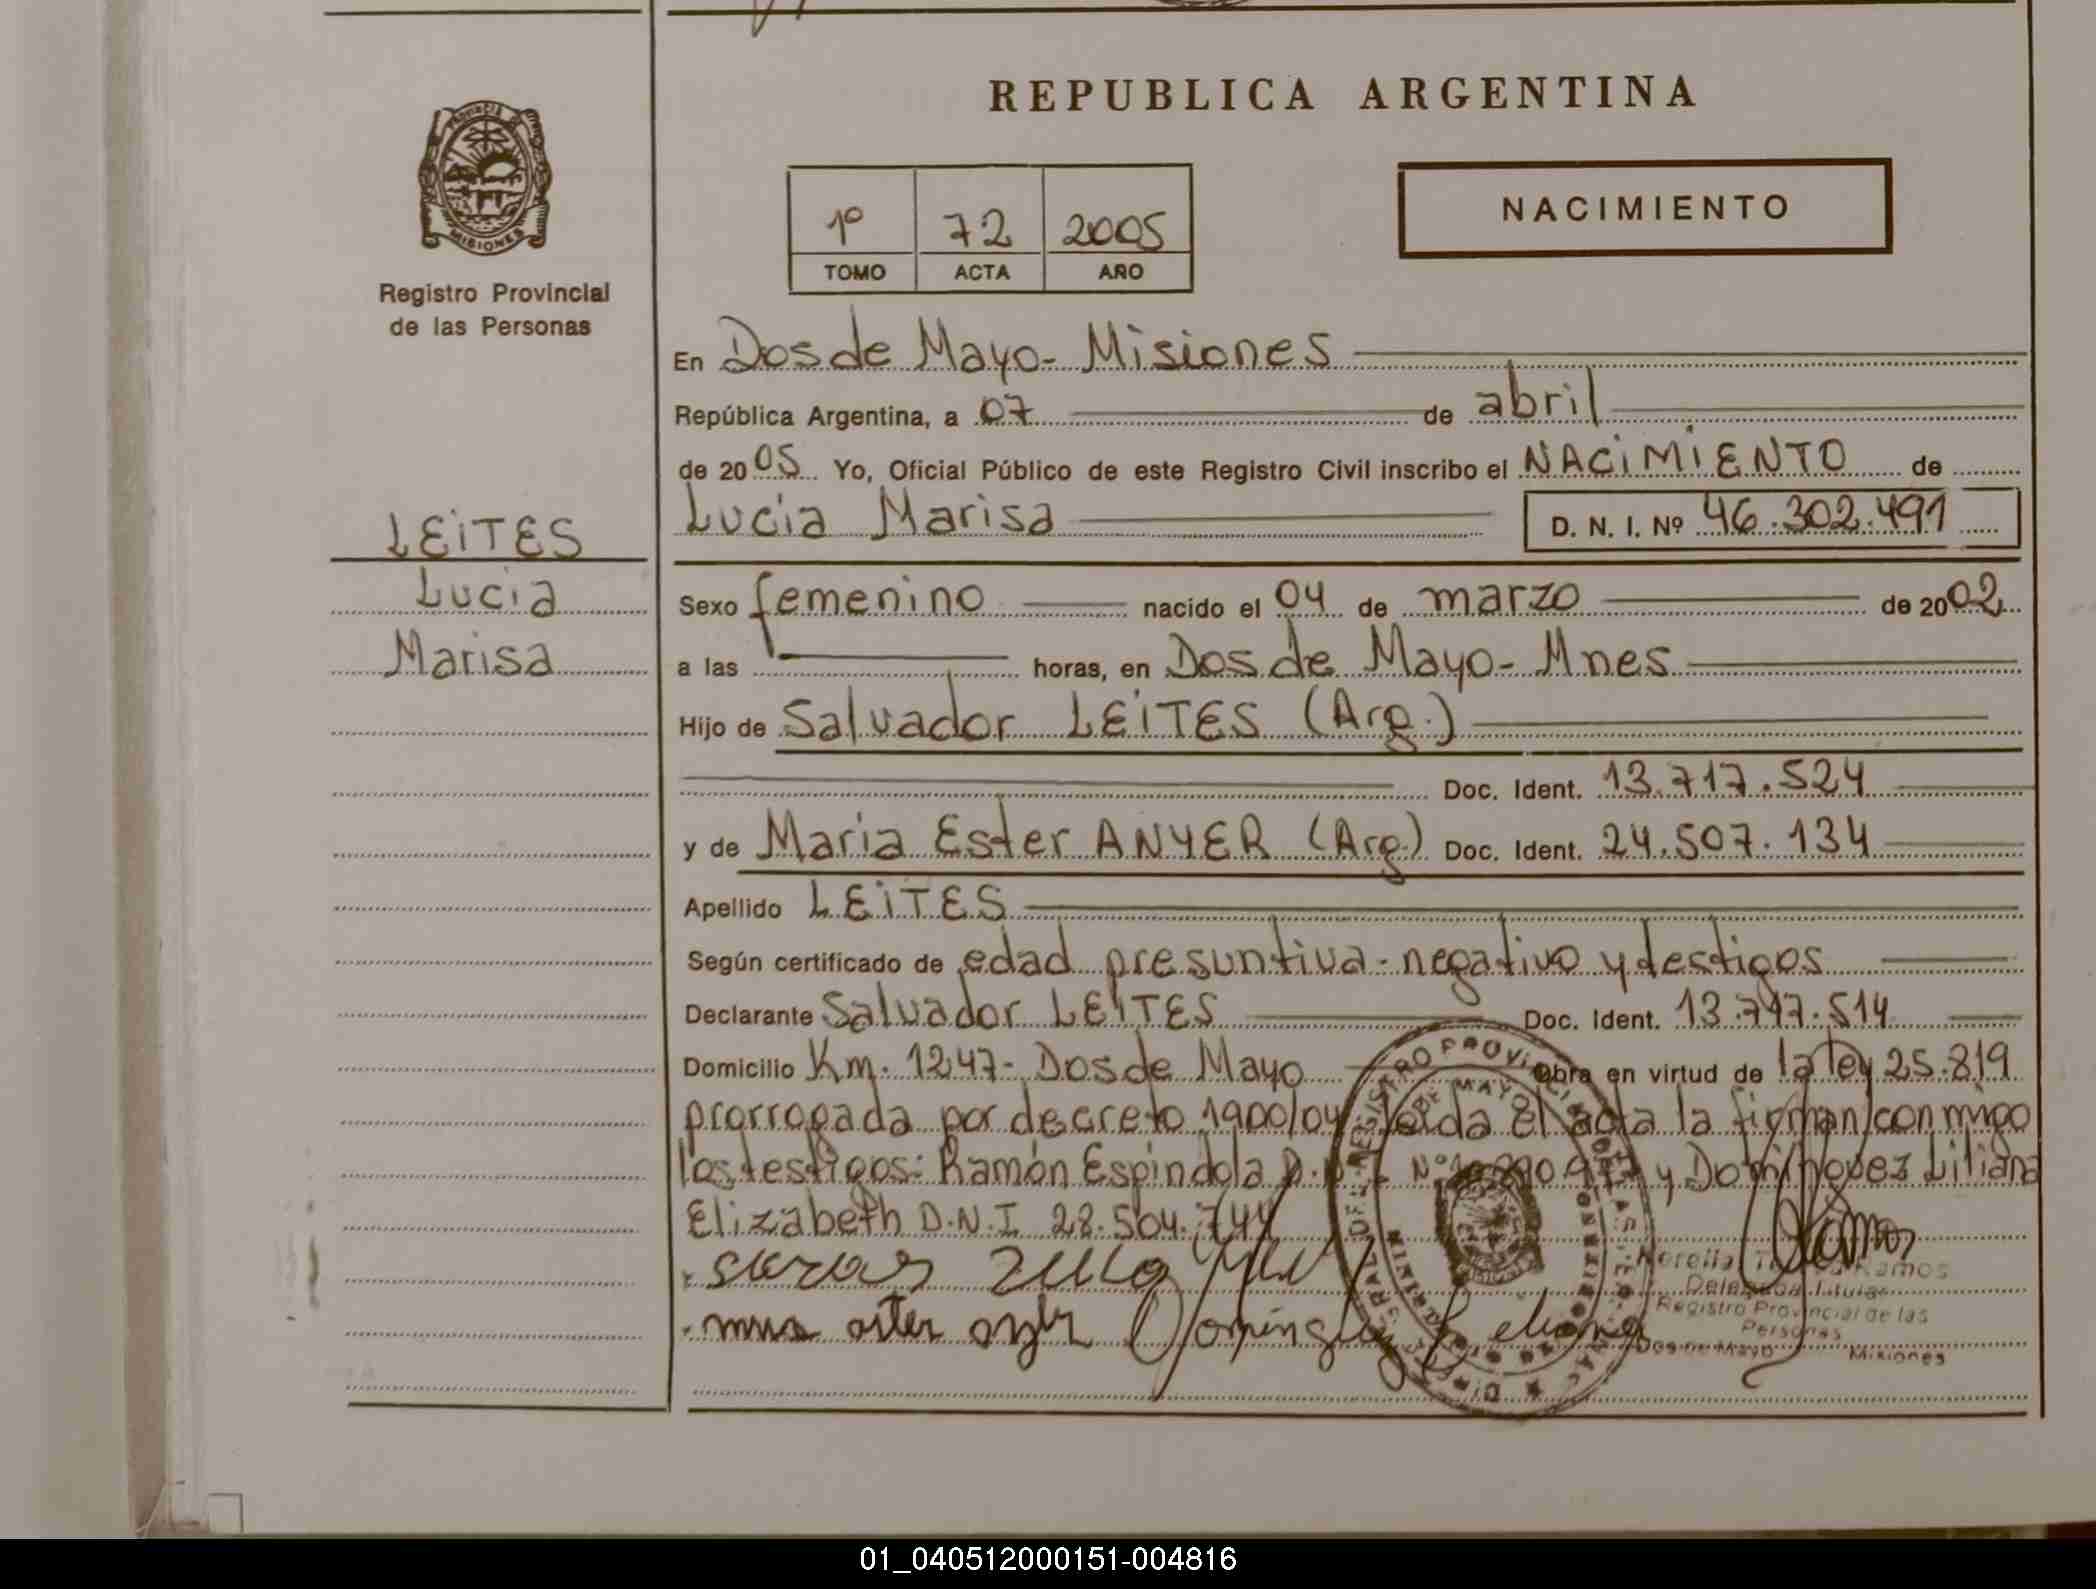 REPUBLICA ARGENTINA
PROVINCIA DE
MISIONES
Registro Provincial
de las Personas
1º 72 2005
TOMO ACTA AÑO
NACIMIENTO
En Dos de Mayo - Misiones
República Argentina, a 07 de abril
de 2005 Yo, Oficial Público de este Registro Civil inscribo el NACIMIENTO de
Lucia Marisa D. N. I. Nº 46.302.491
LEITES
Lucia
Marisa
Sexo femenino nacido el 04 de marzo de 2002
a las horas, en Dos de Mayo - Mnes
Hijo de Salvador LEITES (Arg.)
Doc. Ident. 13.717.524
y de Maria Ester ANYER (Arg.) Doc. Ident. 24.507.134
Apellido LEITES
Según certificado de edad presuntiva - negativo y testigos
Declarante Salvador LEITES Doc. Ident. 13.717.514
Domicilio Km. 1247 - Dos de Mayo Obra en virtud de la ley 25.819
prorrogada por decreto 1900/04 leida el acta la firman conmigo
los testigos: Ramón Espindola D.N.I. Nº y Dominguez Liliana
Elizabeth D.N.I 28.504.744
Dominguez Liliana
Ramos
Delegada Titular
Registro Provincial de las
Personas
Dos de Mayo Misiones
01_040512000151-004816